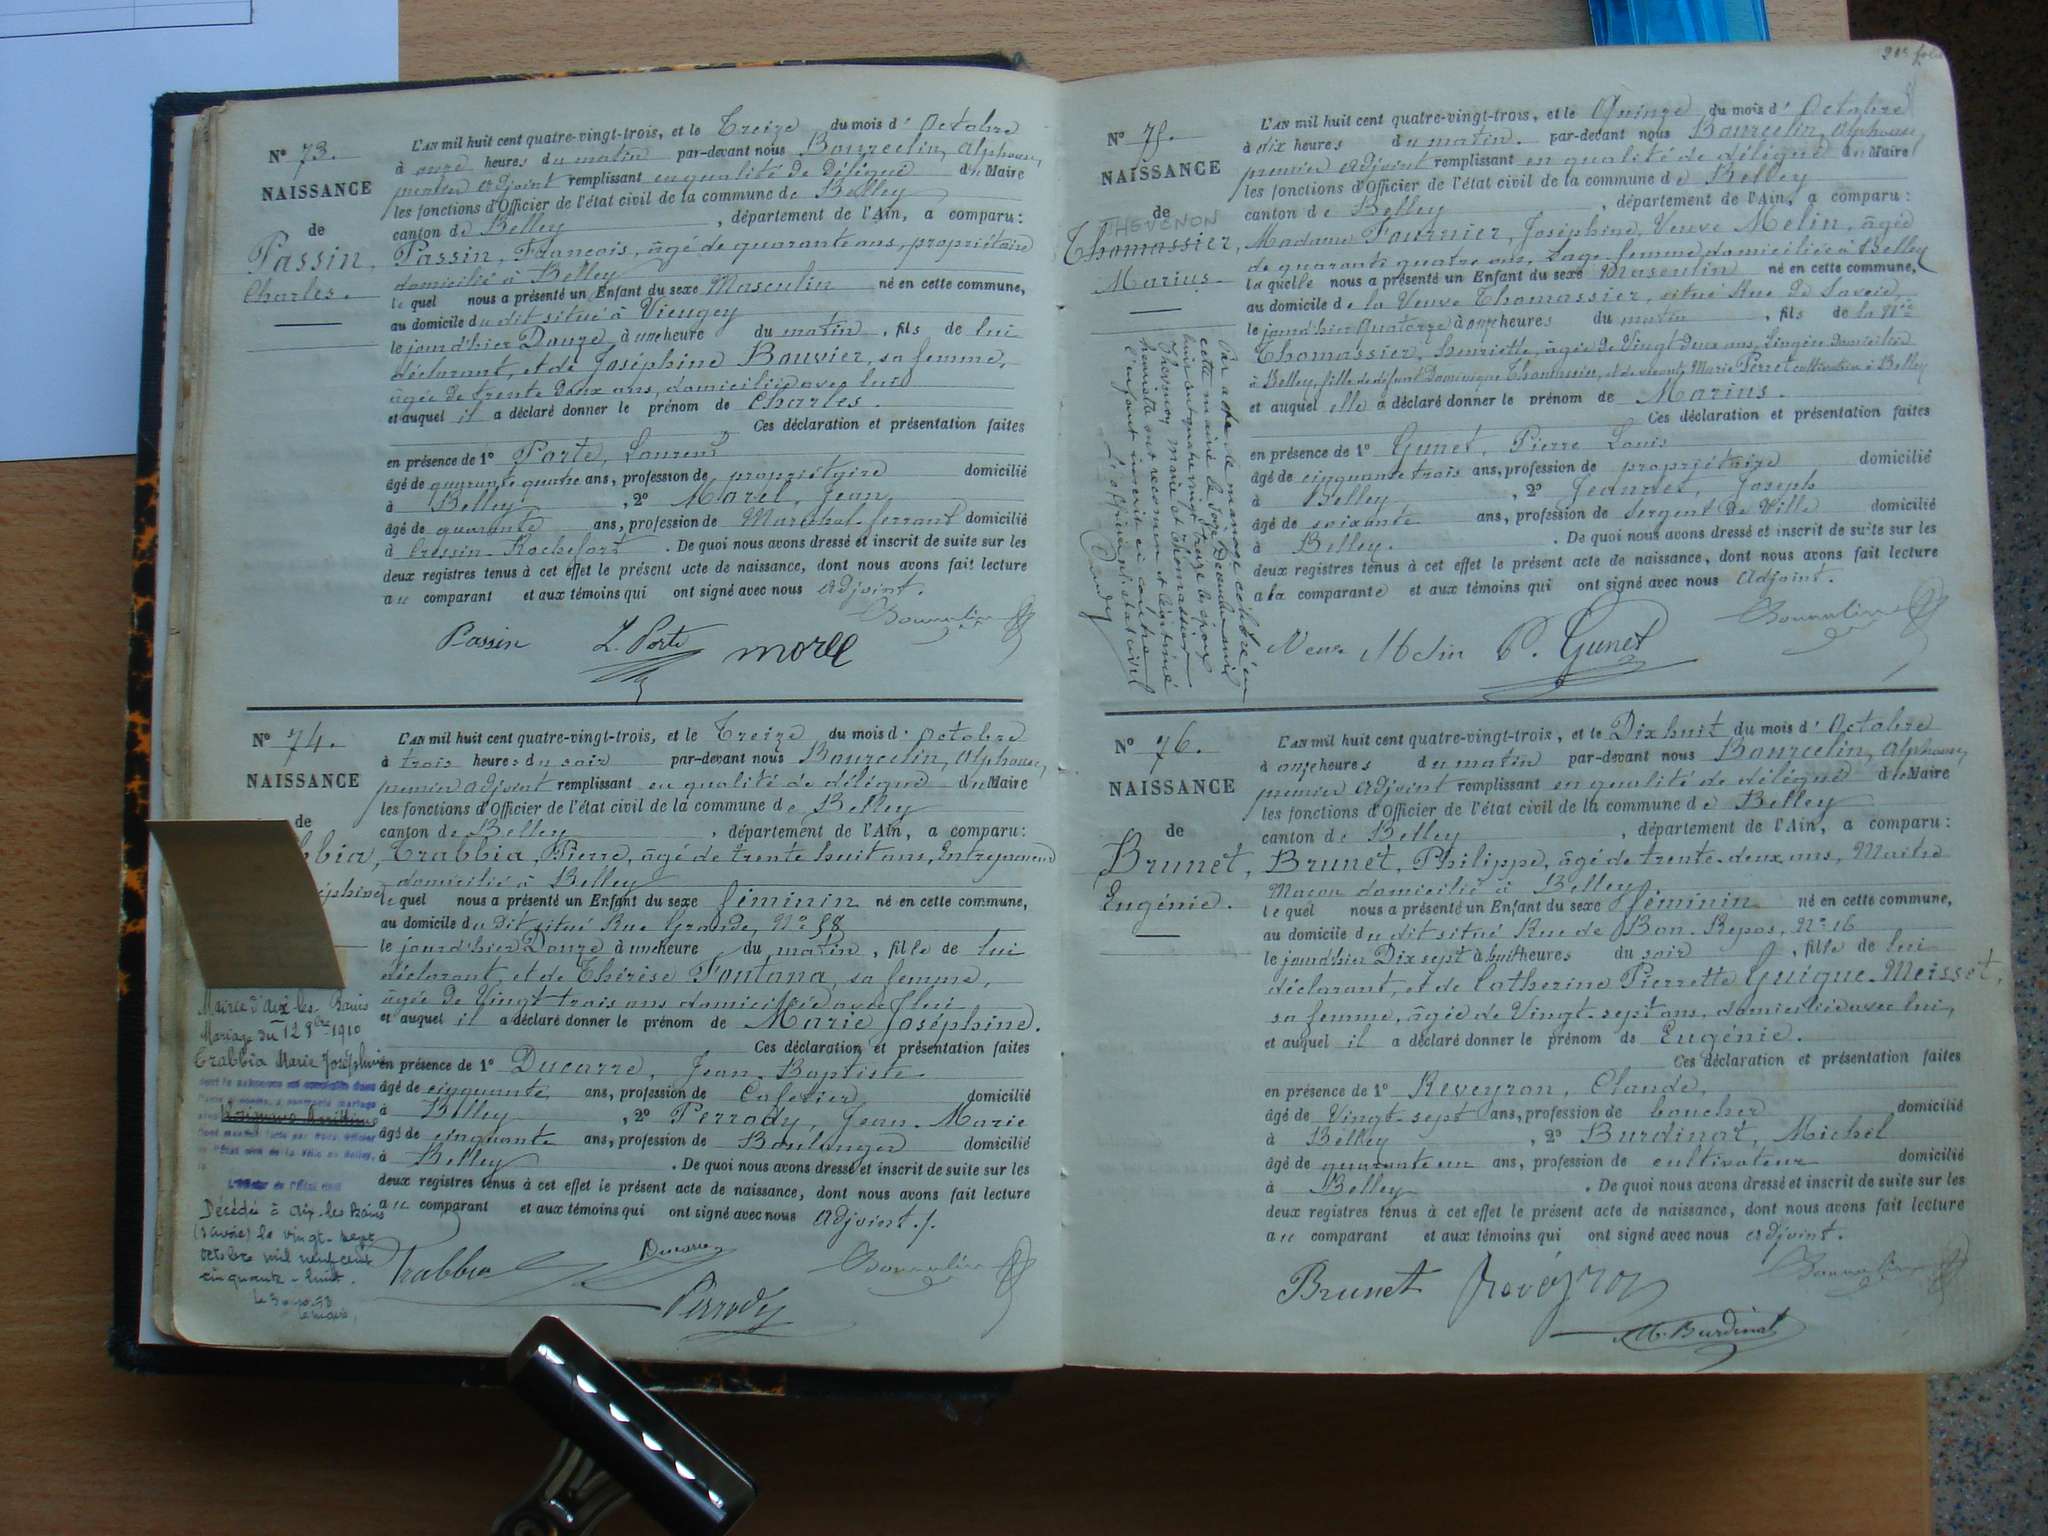 N° 73.
NAISSANCE
de
Passin,
Charles.
L'AN mil huit cent quatre-vingt-trois, et le Treize du mois d'Octobre
à onze heures du matin par-devant nous Bourcelin, Alphonse,
premier adjoint remplissant en qualité de délégué du Maire
les fonctions d'Officier de l'état civil de la commune de Belley
canton de Belley, département de l'Ain, a comparu:
Passin, François, âgé de quarante ans, propriétaire
domicilié à Belley
lequel nous a présenté un Enfant du sexe Masculin né en cette commune,
au domicile du dit situé à Vieugey
le jour d'hier Douze à une heure du matin, fils de lui
déclarant, et de Joséphine Bouvier, sa femme,
âgée de trente deux ans, domiciliée avec lui
et auquel il a déclaré donner le prénom de Charles.
Ces déclaration et présentation faites
en présence de 1° Porte, Laurent
âgé de quarante quatre ans, profession de propriétaire domicilié
à Belley, 2° Morel, Jean
âgé de quarante ans, profession de Maréchal-ferrant domicilié
à Cressin-Rochefort. De quoi nous avons dressé et inscrit de suite sur les
deux registres tenus à cet effet le présent acte de naissance, dont nous avons fait lecture
au comparant et aux témoins qui ont signé avec nous adjoint.
Passin L. Porte morel Bourcelin
N° 74.
NAISSANCE
de
bbia,
éphine
L'AN mil huit cent quatre-vingt-trois, et le Treize du mois d'Octobre
à trois heures du soir par-devant nous Bourcelin, Alphonse,
premier adjoint remplissant en qualité de délégué du Maire
les fonctions d'Officier de l'état civil de la commune de Belley
canton de Belley, département de l'Ain, a comparu:
Trabbia, Pierre, âgé de trente huit ans, Entrepreneur
domicilié à Belley
lequel nous a présenté un Enfant du sexe féminin né en cette commune,
au domicile du dit situé Rue Grande, N° 58
le jour d'hier Douze à une heure du matin, fille de lui
déclarant, et de Thérèse Fontana, sa femme,
âgée de Vingt trois ans domiciliée avec lui
et auquel il a déclaré donner le prénom de Marie Joséphine.
Ces déclaration et présentation faites
en présence de 1° Ducarre, Jean-Baptiste
âgé de cinquante ans, profession de Cafetier domicilié
à Belley, 2° Perrody, Jean-Marie
âgé de cinquante ans, profession de Boulanger domicilié
à Belley. De quoi nous avons dressé et inscrit de suite sur les
deux registres tenus à cet effet le présent acte de naissance, dont nous avons fait lecture
au comparant et aux témoins qui ont signé avec nous adjoint./.
Trabbia Ducarre Perrody Bourcelin
Mairie d'Aix-les-Bains
Mariage du 12 8bre 1910
Trabbia Marie Joséphine
dont la naissance est constatée dans
l'acte ci-contre, a contracté mariage
avec
Dont mention faite par nous, officier
de l'Etat civil de la Ville de Belley,
le
L'Officier de l'Etat civil
Décédée à Aix-les-Bains
(Savoie) le vingt-sept
octobre mil neuf cent
cinquante-huit.
N° 75.
NAISSANCE
de
THEVENON
Thomassier,
Marius.
L'AN mil huit cent quatre-vingt-trois, et le Quinze du mois d'Octobre
à dix heures du matin. par-devant nous Bourcelin, Alphonse,
premier adjoint remplissant en qualité de délégué du Maire
les fonctions d'Officier de l'état civil de la commune de Belley
canton de Belley, département de l'Ain, a comparu:
Madame Fournier, Joséphine, Veuve Melin, âgée
de quarante quatre ans, Sage-femme domiciliée à Belley
laquelle nous a présenté un Enfant du sexe Masculin né en cette commune,
au domicile de la Veuve Thomassier, situé Rue de Savoie,
le jour d'hier Quatorze à onze heures du matin, fils de la Née
Thomassier, henriette, âgée de Vingt deux ans, Lingère domiciliée
à Belley, fille de défunt Dominique Thomassier, et de vivante Marie Perret cultivatrice à Belley
et auquel elle a déclaré donner le prénom de Marius.
Ces déclaration et présentation faites
en présence de 1° Gunet, Pierre Louis
âgé de cinquante trois ans, profession de propriétaire domicilié
à Belley, 2° Jeannet, Joseph
âgé de soixante ans, profession de Sergent de Ville domicilié
à Belley. De quoi nous avons dressé et inscrit de suite sur les
deux registres tenus à cet effet le présent acte de naissance, dont nous avons fait lecture
a la comparante et aux témoins qui ont signé avec nous adjoint.
Veuve Melin P. Gunet Bourcelin
Par acte de mariage célébré en
cette mairie le seize Décembre mil
huit cent quatre vingt treize les époux
Thevenon Marie et Thomassier
henriette ont reconnu et légitimé
l'enfant inscrit ci-contre
L'officier de l'état civil
N° 76.
NAISSANCE
de
Brunet,
Eugénie.
L'AN mil huit cent quatre-vingt-trois, et le Dix huit du mois d'Octobre
à onze heures du matin par-devant nous Bourcelin, Alphonse,
premier adjoint remplissant en qualité de délégué du Maire
les fonctions d'Officier de l'état civil de la commune de Belley
canton de Belley, département de l'Ain, a comparu:
Brunet, Philippe, âgé de trente-deux ans, Maître
Maçon domicilié à Belley.
lequel nous a présenté un Enfant du sexe féminin né en cette commune,
au domicile du dit situé Rue de Bon-Repos, N° 16
le jour d'hier Dix sept à huit heures du soir, fille de lui
déclarant, et de Catherine Pierrette Guigue-Meisset,
sa femme, âgée de Vingt-sept ans, domiciliée avec lui,
et auquel il a déclaré donner le prénom de Eugénie.
Ces déclaration et présentation faites
en présence de 1° Reveyron, Claude,
âgé de Vingt-sept ans, profession de boucher domicilié
à Belley, 2° Burdinat, Michel
âgé de quarante un ans, profession de cultivateur domicilié
à Belley. De quoi nous avons dressé et inscrit de suite sur les
deux registres tenus à cet effet le présent acte de naissance, dont nous avons fait lecture
au comparant et aux témoins qui ont signé avec nous adjoint.
Brunet Reveyron M. Burdinat Bourcelin